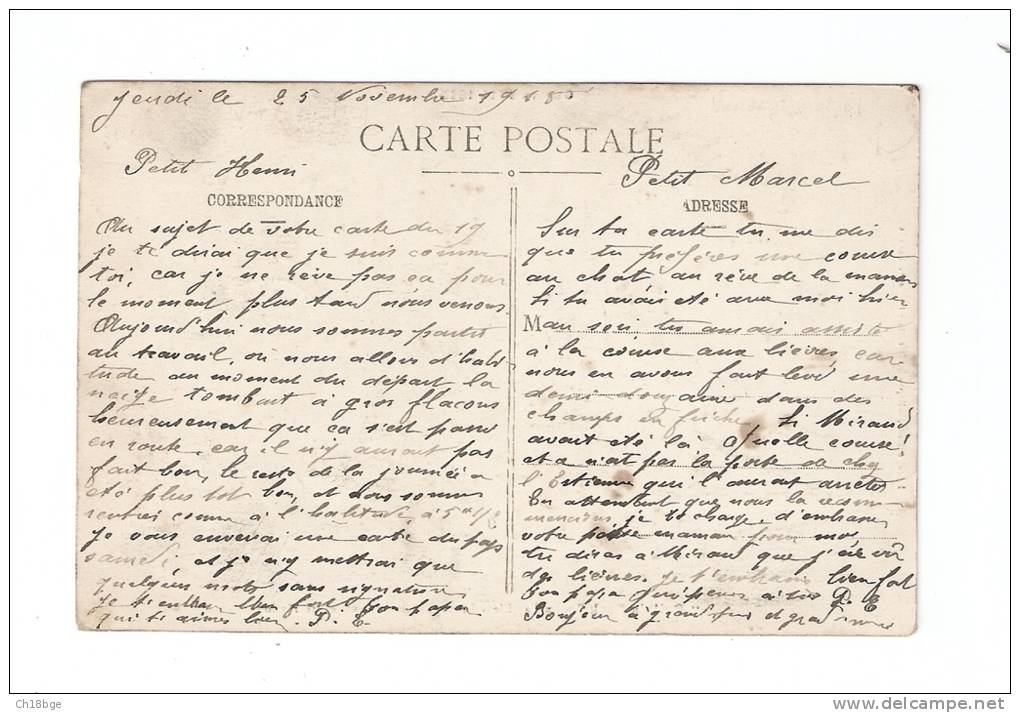 Jeudi le 25 Novembre 1915
CARTE POSTALE
Petit Henri
CORRESPONDANCE
Au sujet de votre carte du 19
je te dirai que je suis comme
toi, car je ne rêve pas ça pour
le moment plus tard nous verrons.
Aujourd'hui nous sommes partis
au travail, où nous allons d'habi-
tude au moment du départ la
neige tombait à gros flacons
heureusement que ça s'est passé
en route, car il n'y aurait pas
fait bon, le reste de la journée a
été plus tot bon, et nous sommes
rentrés comme à l'habitude à 5h 1/2
Je vous enverrai une carte du pays
samedi, et je n'y mettrai que
quelques mots sans signature
Je t'embrasse bien fort ton papa
qui t'aimes bien. P. E.
Petit Marcel
ADRESSE
Sur ta carte tu me dis
que tu préfères une course
au chat au rêve de la maman
Si tu avais été avec moi hier
M au soir tu aurais assisté
à la course aux lièvres car
nous en avons fait levé une
demi douzaine dans des
champs en friche. Si Miraud
avait été là quelle course!
et a n'at pas la porte de chez
l'Estienne qui l'aurait arrêté.
En attendant que nous la recom-
mencions je te charge d'embrasser
votre petite maman pour moi
tu diras à Miraud que j'ai vu
des lièvres. je t'embrasse bien fort
ton papa qui penses à toi P. E
Bonjour à grand père et grand mère
Ch18bge
delcampe.net